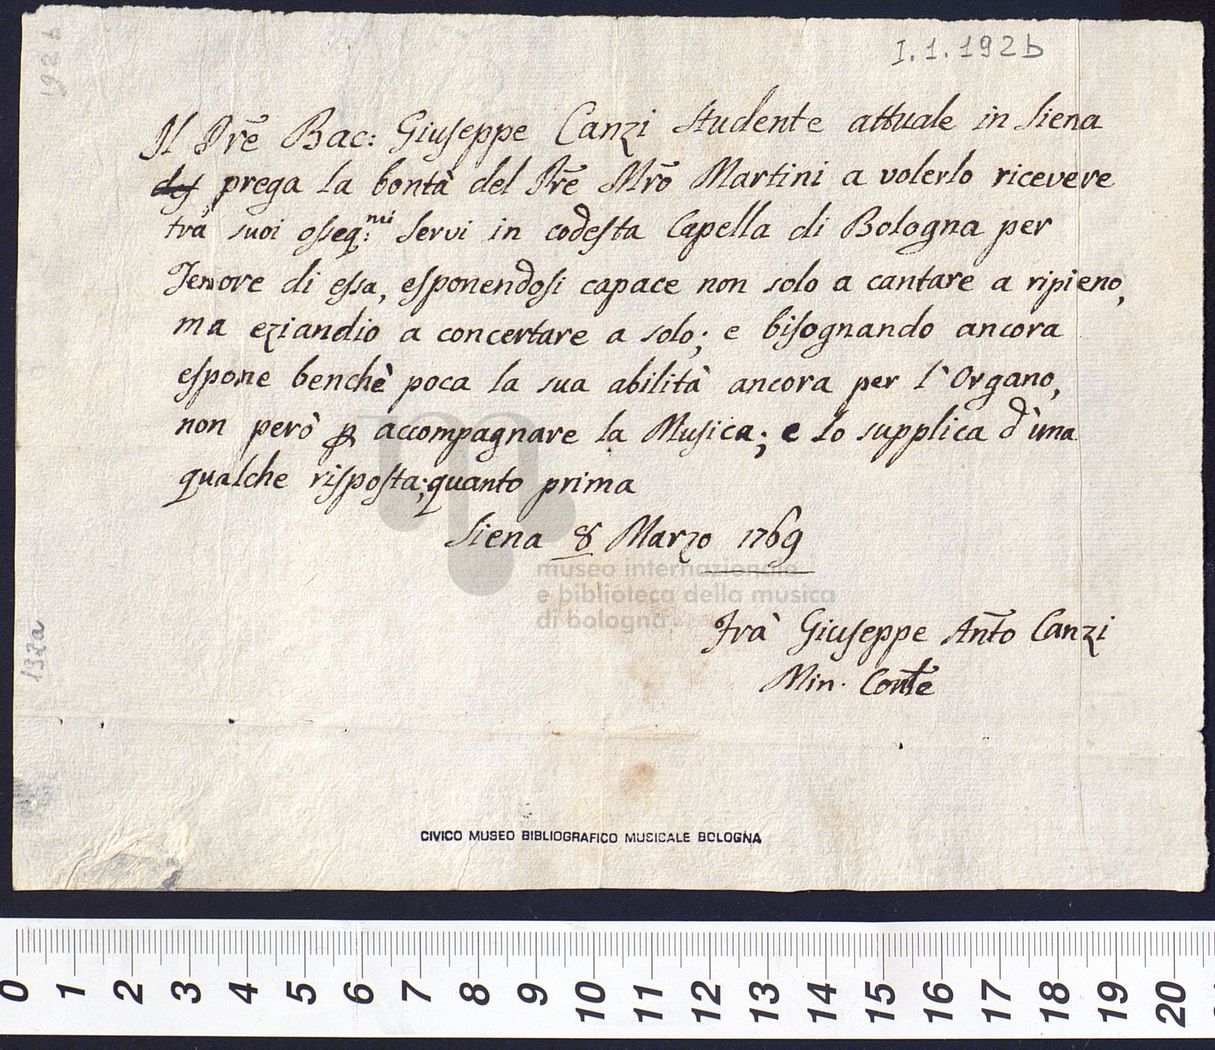 I.1.192b
Il Pre Bac: Giuseppe Canzi studente attuale in Siena
prega la bontà del Pre Mro Martini a volerlo ricevere
trà suoi osseq:mi servi in codesta Capella di Bologna per
Tenore di essa, esponendosi capace non solo a cantare a ripieno,
ma eziandio a concertare a solo; e bisognando ancora
espone benchè poca la sua abilità ancora per l'Organo,
non però p accompagnare la Musica; e lo supplica d'una
qualche risposta; quanto prima
Siena 8 Marzo 1769
museo internazionale
e biblioteca della musica
di bologna
Frà Giuseppe Anto Canzi
Min. Conte
192b
132a
CIVICO MUSEO BIBLIOGRAFICO MUSICALE BOLOGNA
0 1 2 3 4 5 6 7 8 9 10 11 12 13 14 15 16 17 18 19 20